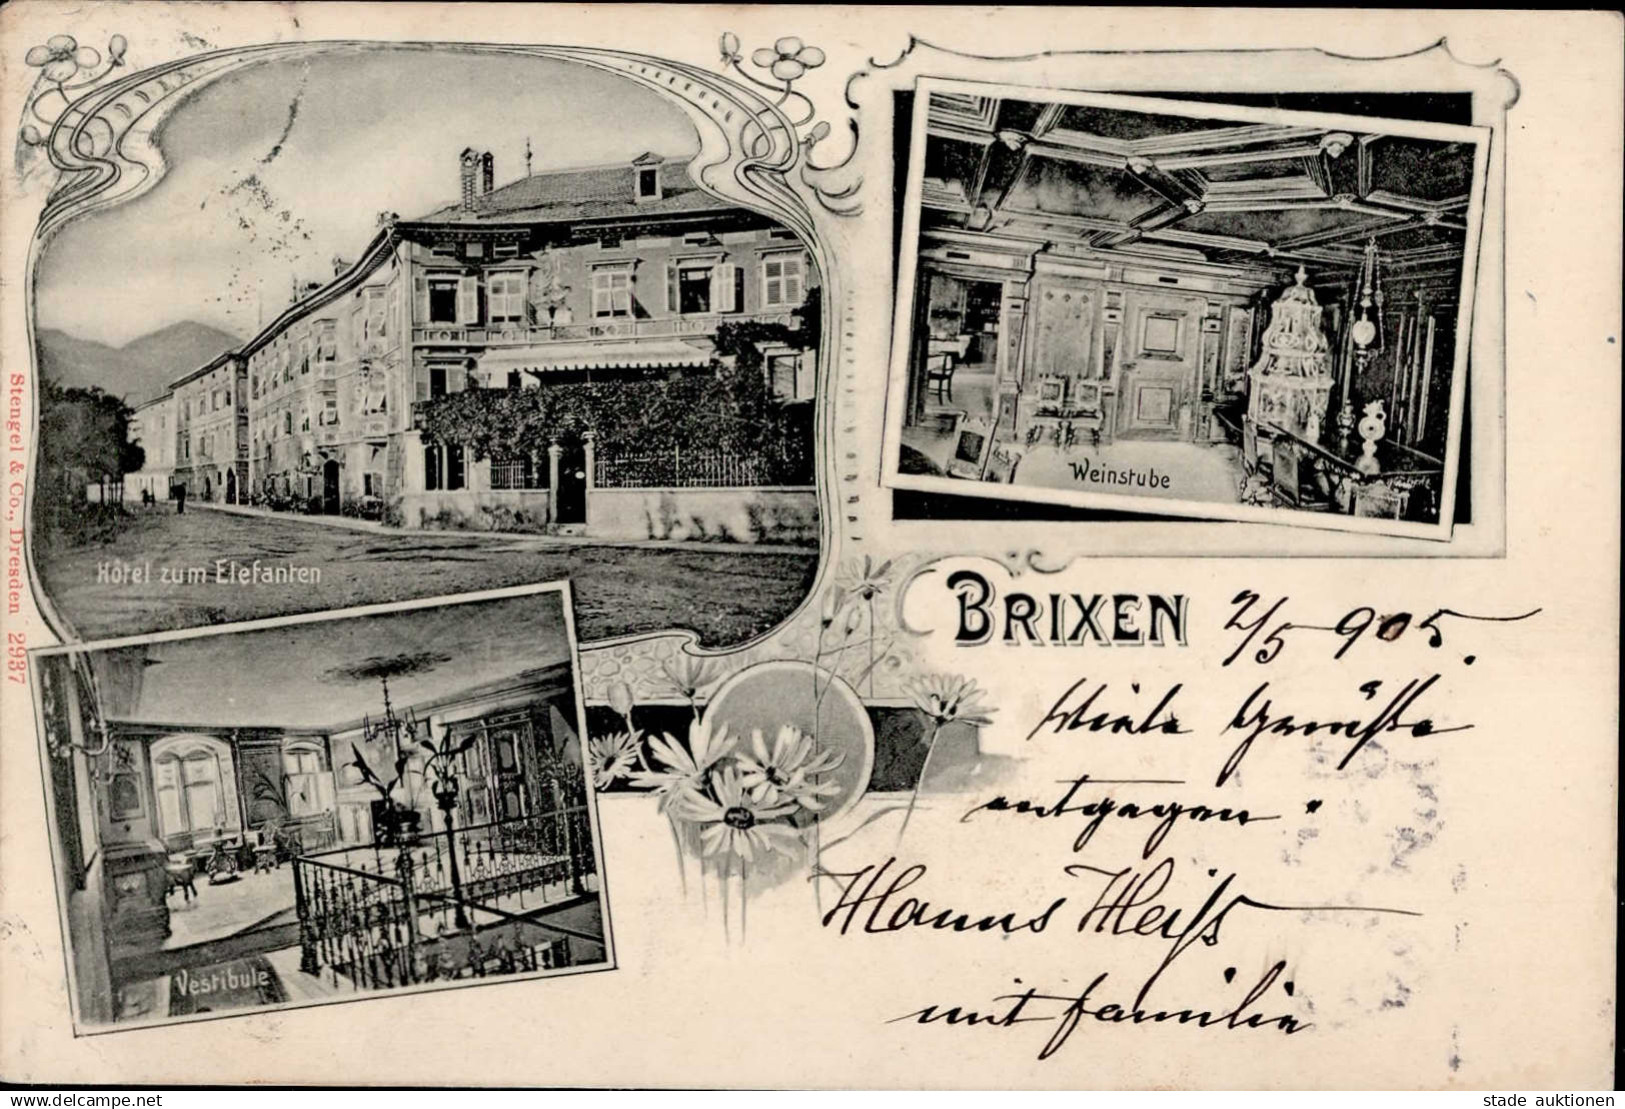 Hôtel zum Elefanten
Weinstube
Vestibule
Stengel & Co., Dresden 2937
BRIXEN 2/5 905.
Viele Grüße
entgegen
Hanns Weiß
mit Familie
stade auktionen